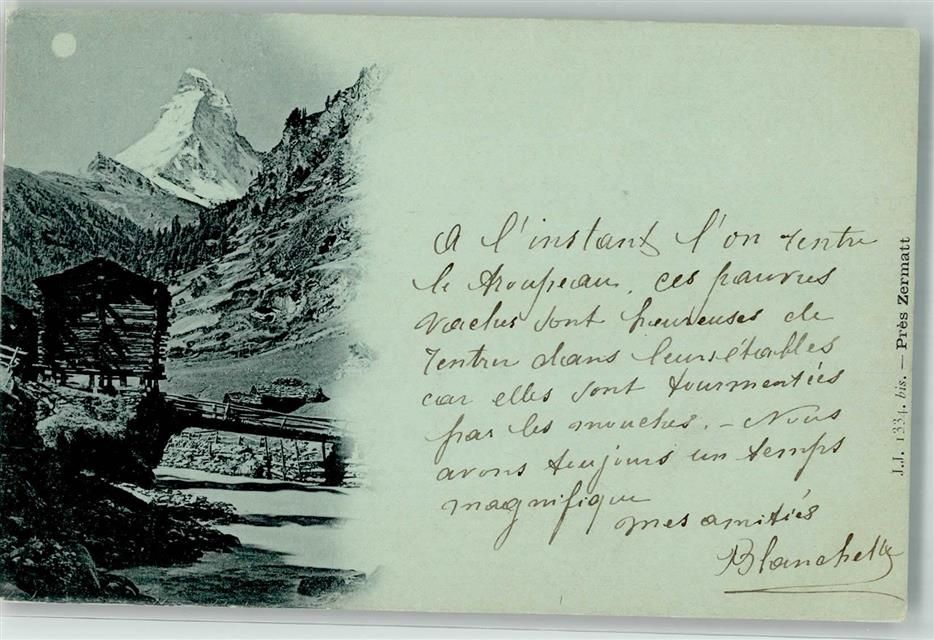 A l'instant l'on rentre
le troupeau, ces pauvres
vaches sont heureuses de
rentrer dans leurs étables
car elles sont tourmentées
par les mouches. - Nous
avons toujours un temps
magnifique
mes amitiés
Blanchette
J.J. 1334. bis. — Près Zermatt